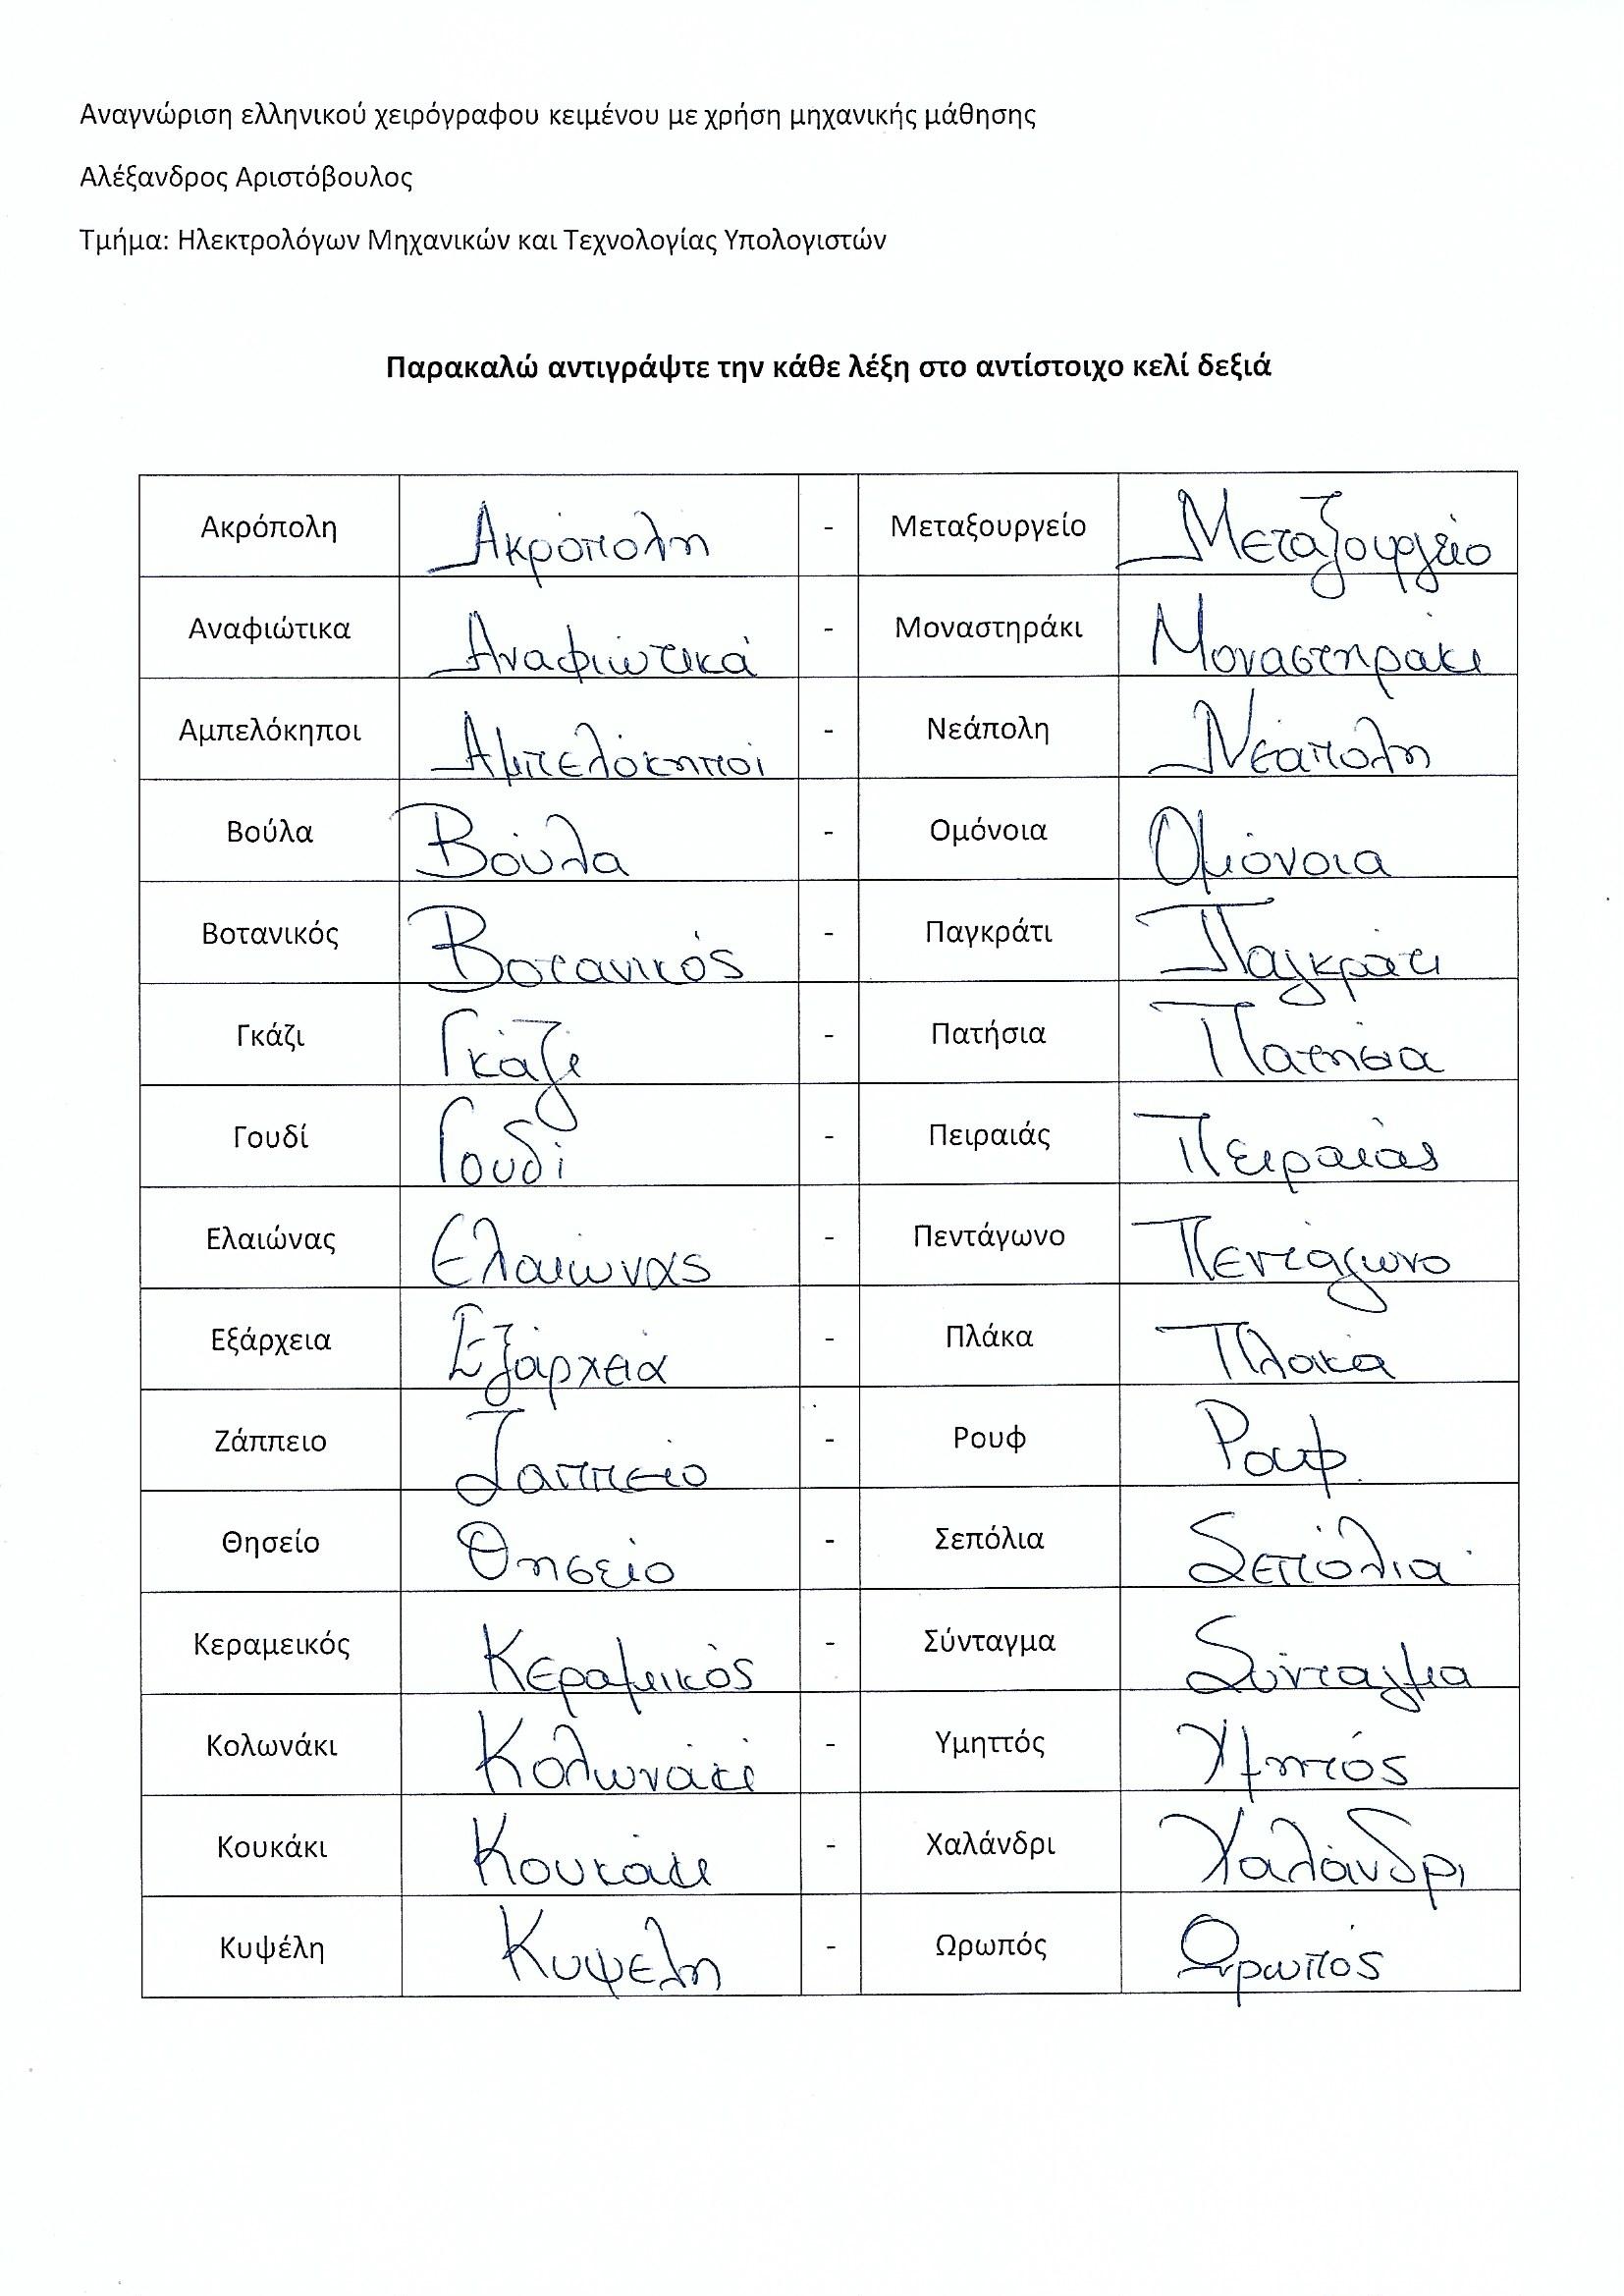 Αναγνώριση ελληνικού χειρόγραφου κειμένου με χρήση μηχανικής μάθησης
Αλέξανδρος Αριστόβουλος
Τμήμα: Ηλεκτρολόγων Μηχανικών και Τεχνολογίας Υπολογιστών
Παρακαλώ αντιγράψτε την κάθε λέξη στο αντίστοιχο κελί δεξιά
Ακρόπολη Ακρόπολη - Μεταξουργείο Μεταξουργείο
Αναφιώτικα Αναφιώτικά - Μοναστηράκι Μοναστηράκι
Αμπελόκηποι Αμπελόκηποι - Νεάπολη Νεάπολη
Βούλα Βούλα - Ομόνοια Ομόνοια
Βοτανικός Βοτανικός - Παγκράτι Παγκράτι
Γκάζι Γκάζι - Πατήσια Πατήσια
Γουδί Γουδί - Πειραιάς Πειραιάς
Ελαιώνας Ελαιώνας - Πεντάγωνο Πεντάγωνο
Εξάρχεια Εξάρχεια - Πλάκα Πλάκα
Ζάππειο Ζάππειο - Ρουφ Ρουφ
Θησείο Θησείο - Σεπόλια Σεπόλια
Κεραμεικός Κεραμεικός - Σύνταγμα Σύνταγμα
Κολωνάκι Κολωνάκι - Υμηττός Υμηττός
Κουκάκι Κουκάκι - Χαλάνδρι Χαλάνδρι
Κυψέλη Κυψέλη - Ωρωπός Ωρωπός